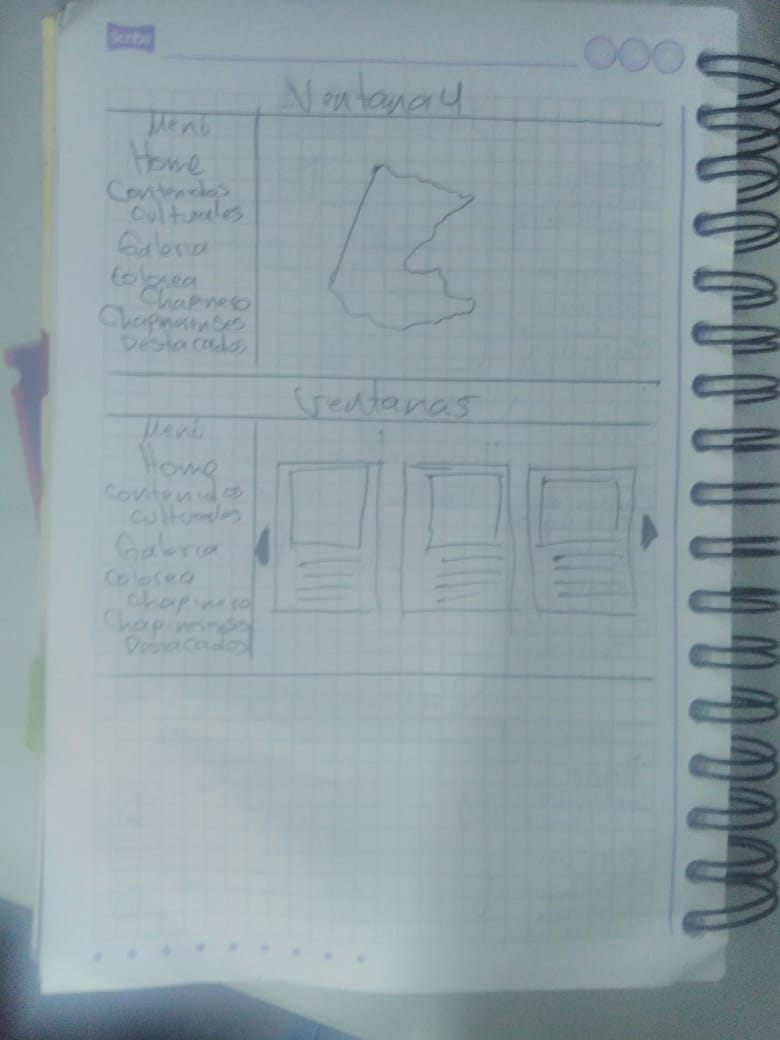 Scribe
Ventana 4
Menú
Home
Contenidos
Culturales
Galeria
Colorea
Chapinero
Destacados
Ventana 5
Menú
Home
Contenidos
culturales
Galeria
Colorea
Chapinero
Destacados